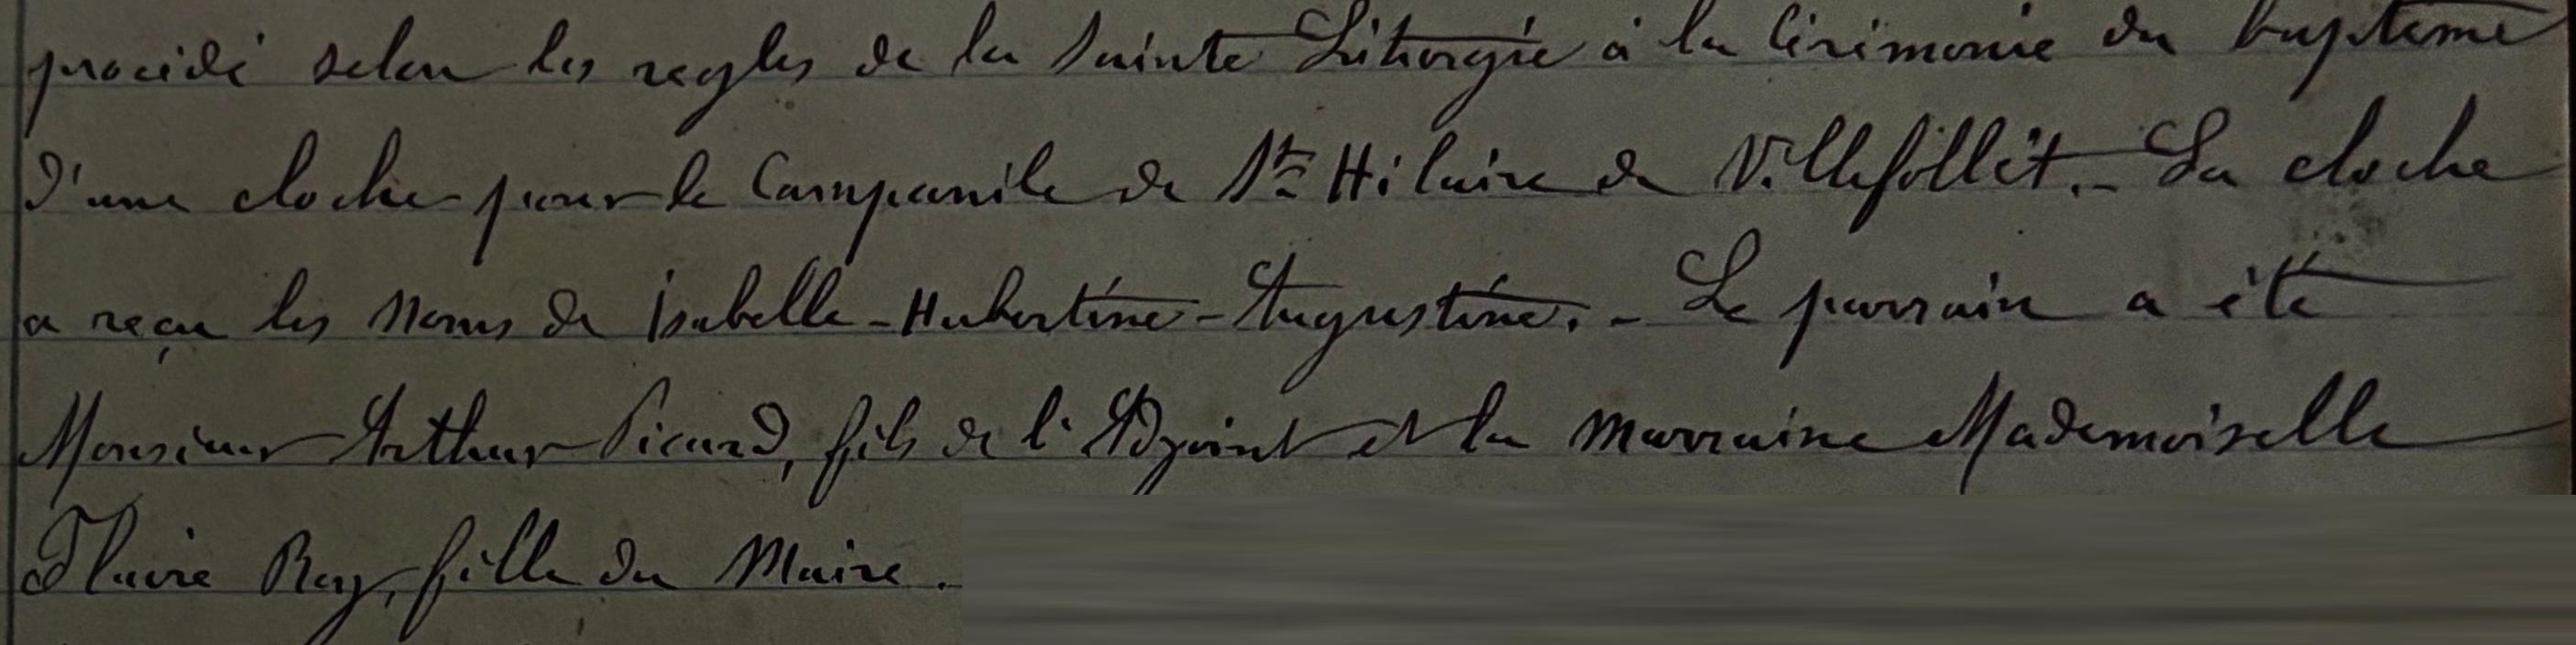 procédé selon les regles de la Sainte Liturgie à la Cérémonie du baptême
d'une cloche pour le Campanile de St Hilaire de Villefollêt. - La cloche
a reçu les Noms de Isabelle - Hubertine - Augustine. - Le parrain a été
Monsieur Arthur Picard, fils de l'Adjoint et la Marraine Mademoiselle
Flavie Rey, fille du Maire.